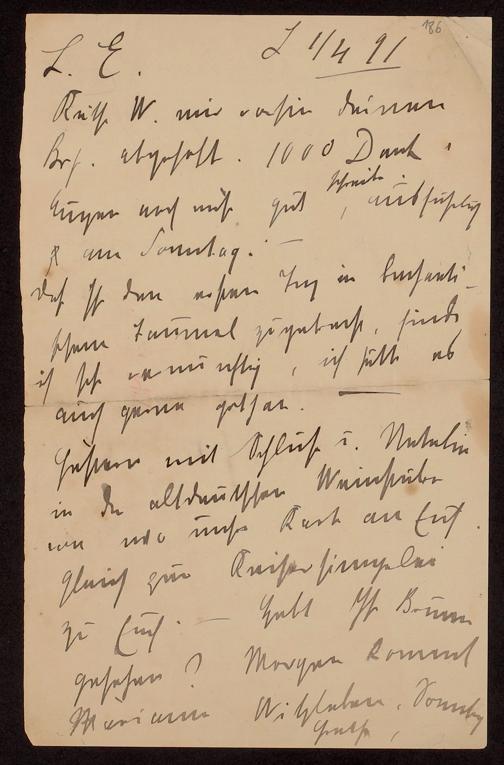 186
L. E. L 1/4 91
Käthe W. mir vorhin deinen
Brf. abgeholt. 1000 Dank.
Augen noch nicht gut, schreibe ausführlich
am Sonntag. —
Daß Ihr den ersten Tag in
Taumel zugebracht, finde
ich sehr vernünftig, ich hätte es
auch gerne gethan. —
Gestern mit Schlich u. Natalie
in der altdeutschen Weinstube
von wo unsre Karte an Euch.
Gleich zur
zu Euch. — Habt Ihr Brunn
gesehen? Morgen kommt
Marianne Witzleben, Sonntag